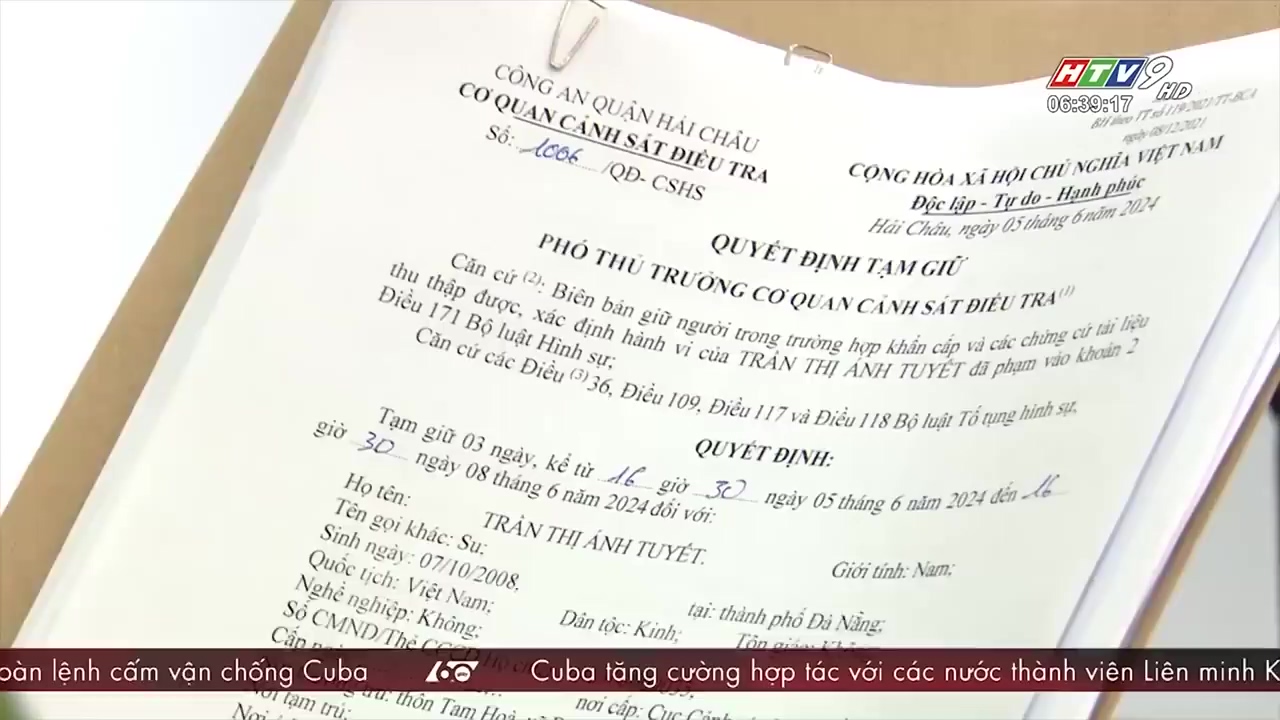 HTV9 HD
06:39:17
BH theo TT số 119/2021/TT-BCA
ngày 08/12/2021
CÔNG AN QUẬN HẢI CHÂU
CƠ QUAN CẢNH SÁT ĐIỀU TRA
Số: 1006 /QĐ- CSHS
CỘNG HÒA XÃ HỘI CHỦ NGHĨA VIỆT NAM
Độc lập - Tự do - Hạnh phúc
Hải Châu, ngày 05 tháng 6 năm 2024
QUYẾT ĐỊNH TẠM GIỮ
PHÓ THỦ TRƯỞNG CƠ QUAN CẢNH SÁT ĐIỀU TRA(1)
Căn cứ (2): Biên bản giữ người trong trường hợp khẩn cấp và các chứng cứ tài liệu
thu thập được, xác định hành vi của TRẦN THỊ ÁNH TUYẾT đã phạm vào khoản 2
Điều 171 Bộ luật Hình sự;
Căn cứ các Điều (3) 36, Điều 109, Điều 117 và Điều 118 Bộ luật Tố tụng hình sự,
QUYẾT ĐỊNH:
Tạm giữ 03 ngày, kể từ 16 giờ 30 ngày 05 tháng 6 năm 2024 đến 16
giờ 30 ngày 08 tháng 6 năm 2024 đối với:
Họ tên: TRẦN THỊ ÁNH TUYẾT. Giới tính: Nam;
Tên gọi khác: Su;
Sinh ngày: 07/10/2008, tại: thành phố Đà Nẵng;
Quốc tịch: Việt Nam; Dân tộc: Kinh; Tôn giáo: Không
Nghề nghiệp: Không;
Số CMND/Thẻ CCCD
Cấp nơi cấp: Cục Cảnh
trú: thôn Tam Hoà,
Nơi tạm trú:
Nơi
oàn lệnh cấm vận chống Cuba 60 Cuba tăng cường hợp tác với các nước thành viên Liên minh K